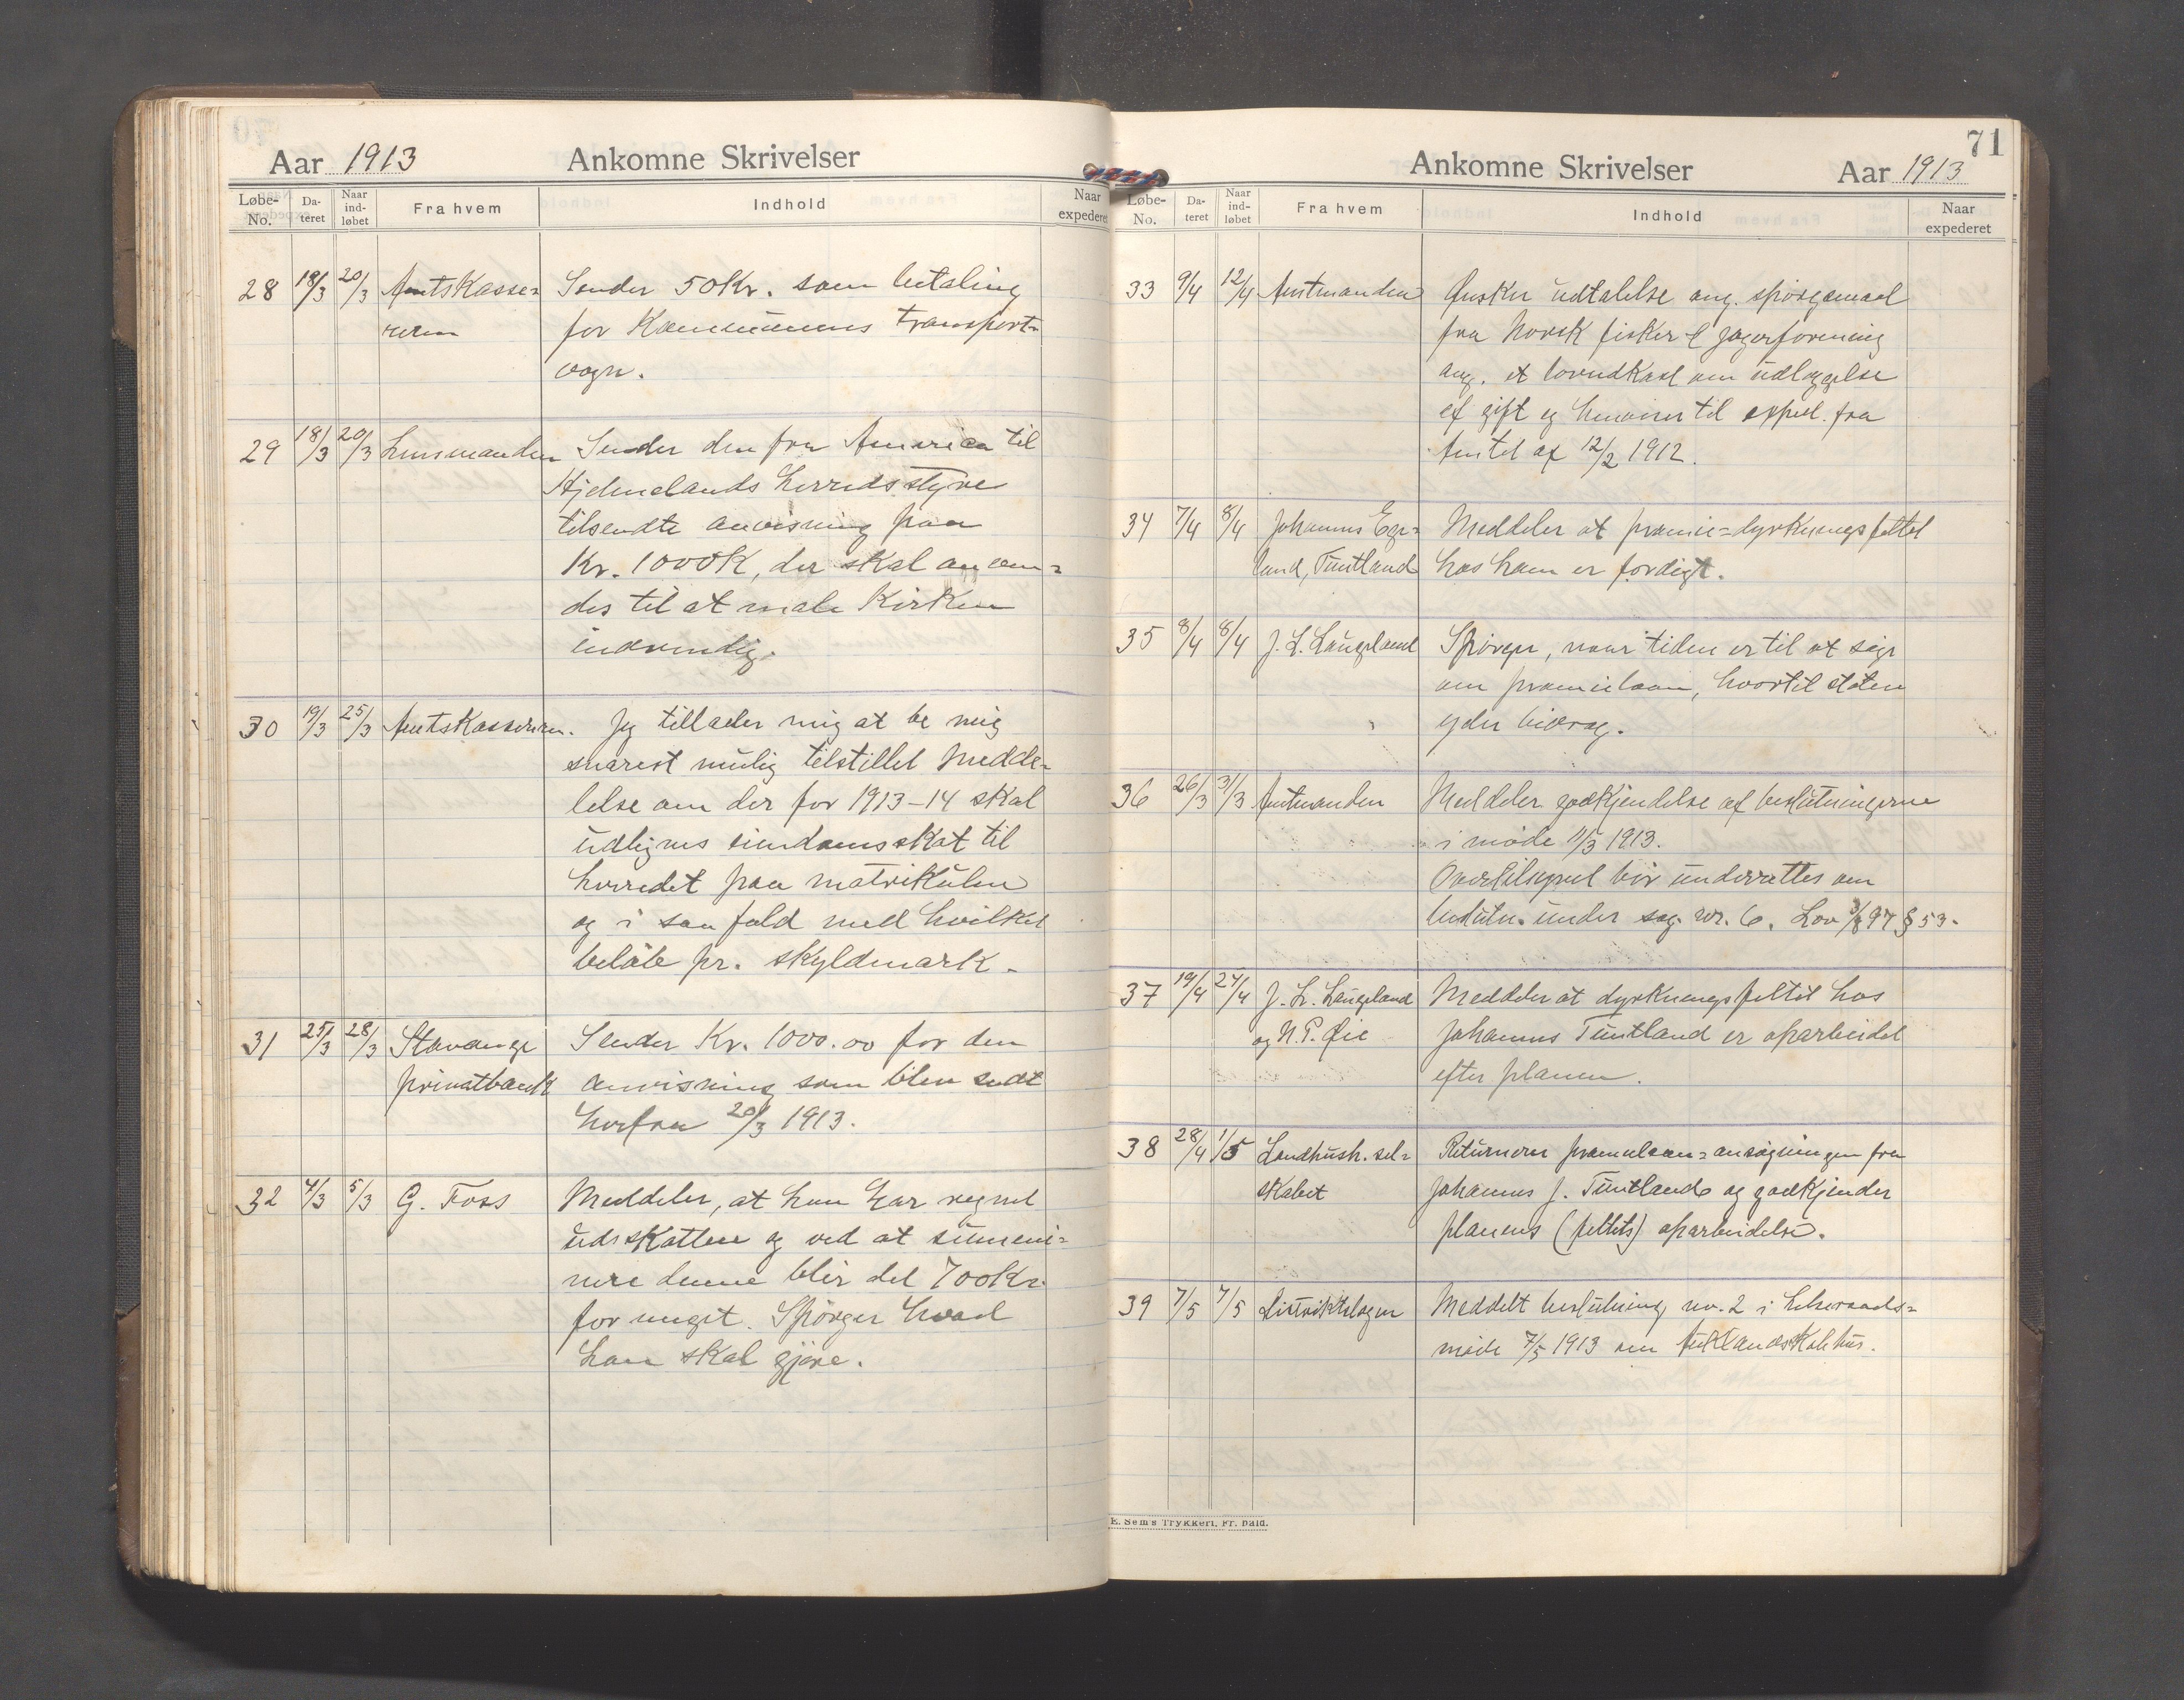 Aar 1913 Ankomne Skrivelser
Løbe-No. Da-teret Naar ind-løbet Fra hvem Indhold Naar expederet
28 18/3 20/3 Amtskasse= Sender 50 Kr. som betaling
reren for Kommunens transport=
vogn.
29 18/3 20/3 Lensmanden Sender den fra America til
Hjelmelands herredsstyre
tilsendte anvisning paa
Kr. 1000 K, der skal anven=
des til at male Kirken
indvendig.
30 19/3 25/3 Amtskassereren. Jeg tillader mig at be mig
snarest mulig tilstillet Medde=
lelse om der for 1913-14 skal
udlignes eiendomsskat til
herredet paa matrikulen
og i saa fald med hvilket
beløb pr. skyldmark.
31 25/3 28/3 Stavanger Sender Kr. 1000.00 for den
privatbank anvisning som blev sendt
herfra 20/3 1913.
32 4/3 5/3 G. Foss Meddeler, at han har regnet
ud skatten og ved at summe=
rere denne blir det 700 Kr.
for meget. Spørger hvad
han skal gjøre.
71
Ankomne Skrivelser Aar 1913
Løbe-No. Da-teret Naar ind-løbet Fra hvem Indhold Naar expederet
33 9/4 12/4 Amtmanden Ønsker udtalelse ang. spørgsmaal
fra Norsk fisker & Jægerforening
ang. et lovudkast om udlæggelse
af gift og henviser til exped. fra
Amtet af 12/2 1912.
34 7/4 8/4 Johannes Ege= Meddeler at præmie=dyrkningsfeltet
land, Tuntland hos ham er færdigt.
35 8/4 8/4 J. L. Laugeland Spørger, naar tiden er til at søge
om præmielaan, hvortil staten
yder bidrag.
36 26/3 31/3 Amtmanden Meddeler godkjendelse af beslutningerne
i møde 11/3 1913.
Overtilsynet bør underrettes om
beslutn. under sag nr. 6. Lov 3/8 97 § 53.
37 19/4 24/4 J. L. Laugeland Meddeler at dyrkningsfeltet hos
og N. P. Øie Johannes Tuntland er oparbeidet
efter planen.
38 28/4 1/5 Landhush. sel= Returnerer præmielaan=ansøgningen fra
skabet Johannes J. Tuntland og godkjender
planens (feltets) oparbeidelse.
39 7/5 7/5 Distriktslægen Meddelt beslutning no. 2 i helseraads=
møde 7/5 1913 om
E. Sem's Trykkeri, Fr. hald.